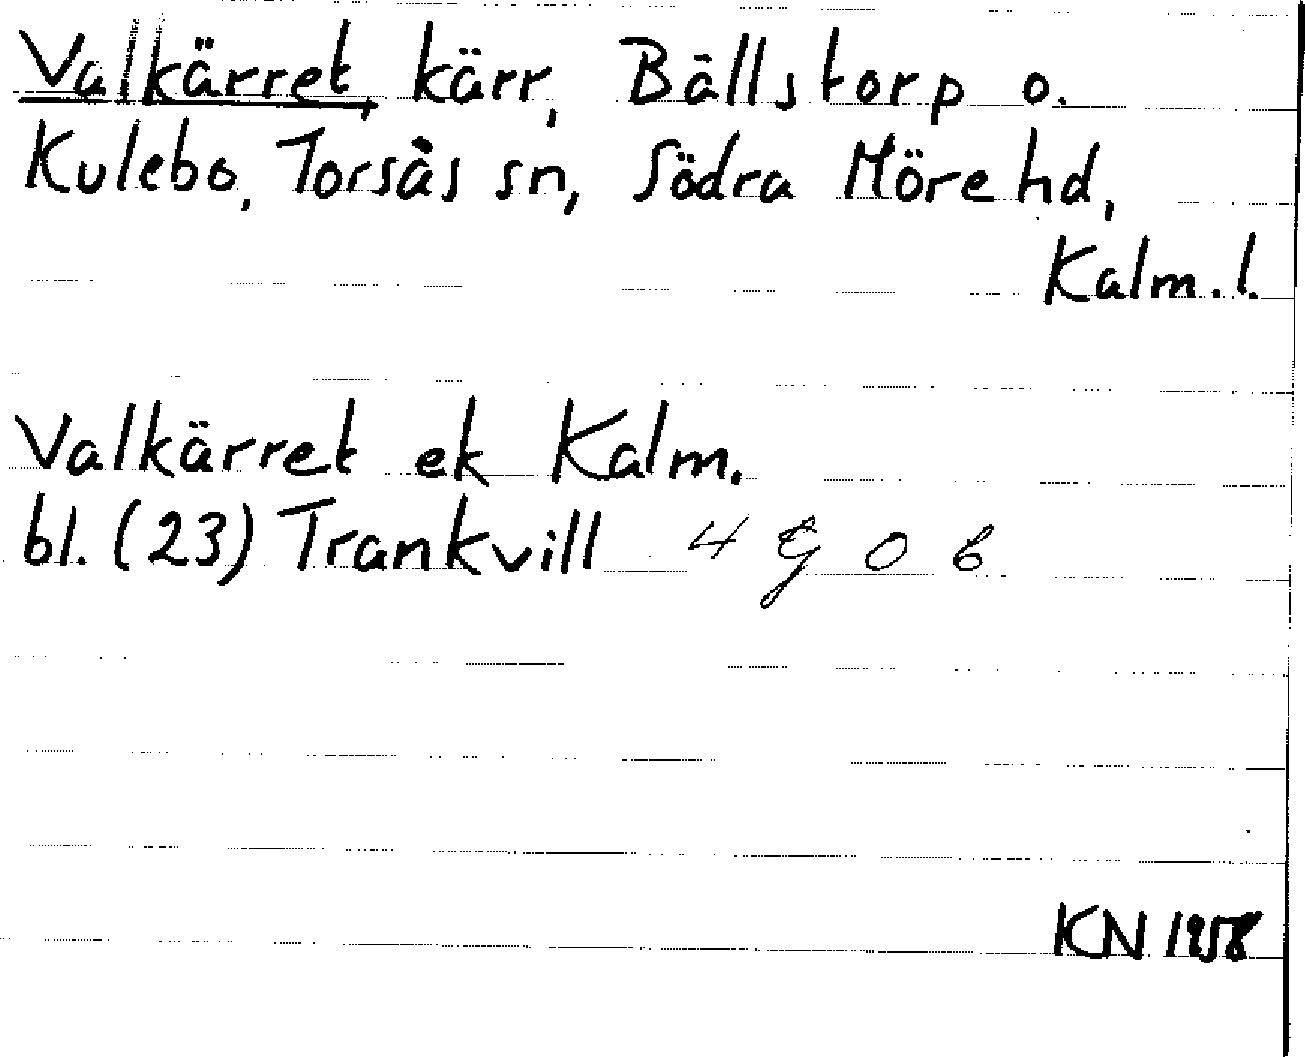 Valkärret, kärr, Bällstorp o.
Kulebo, Torsås sn, Södra Möre hd,
Kalm. l.
Valkärret ek Kalm.
bl. (23) Trankvill 4 G 0 b
KN 1958